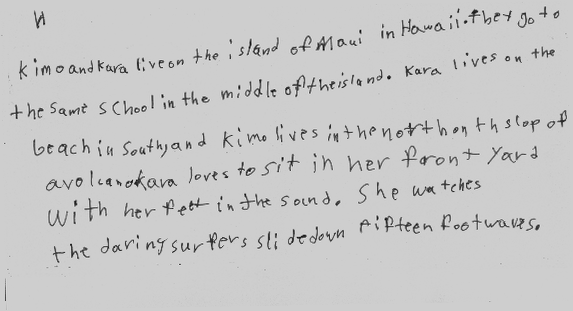 И
Kimo and Kara live on the island of Maui in Hawaii. they go to
the Same School in the middle of the island. Kara lives on the
beach in South, and Kimo lives in the north on th slop of
a volcano Kara loves to sit in her front Yard
with her feet in the sound. She watches
the daring surfers slide down fifteen foot waves.